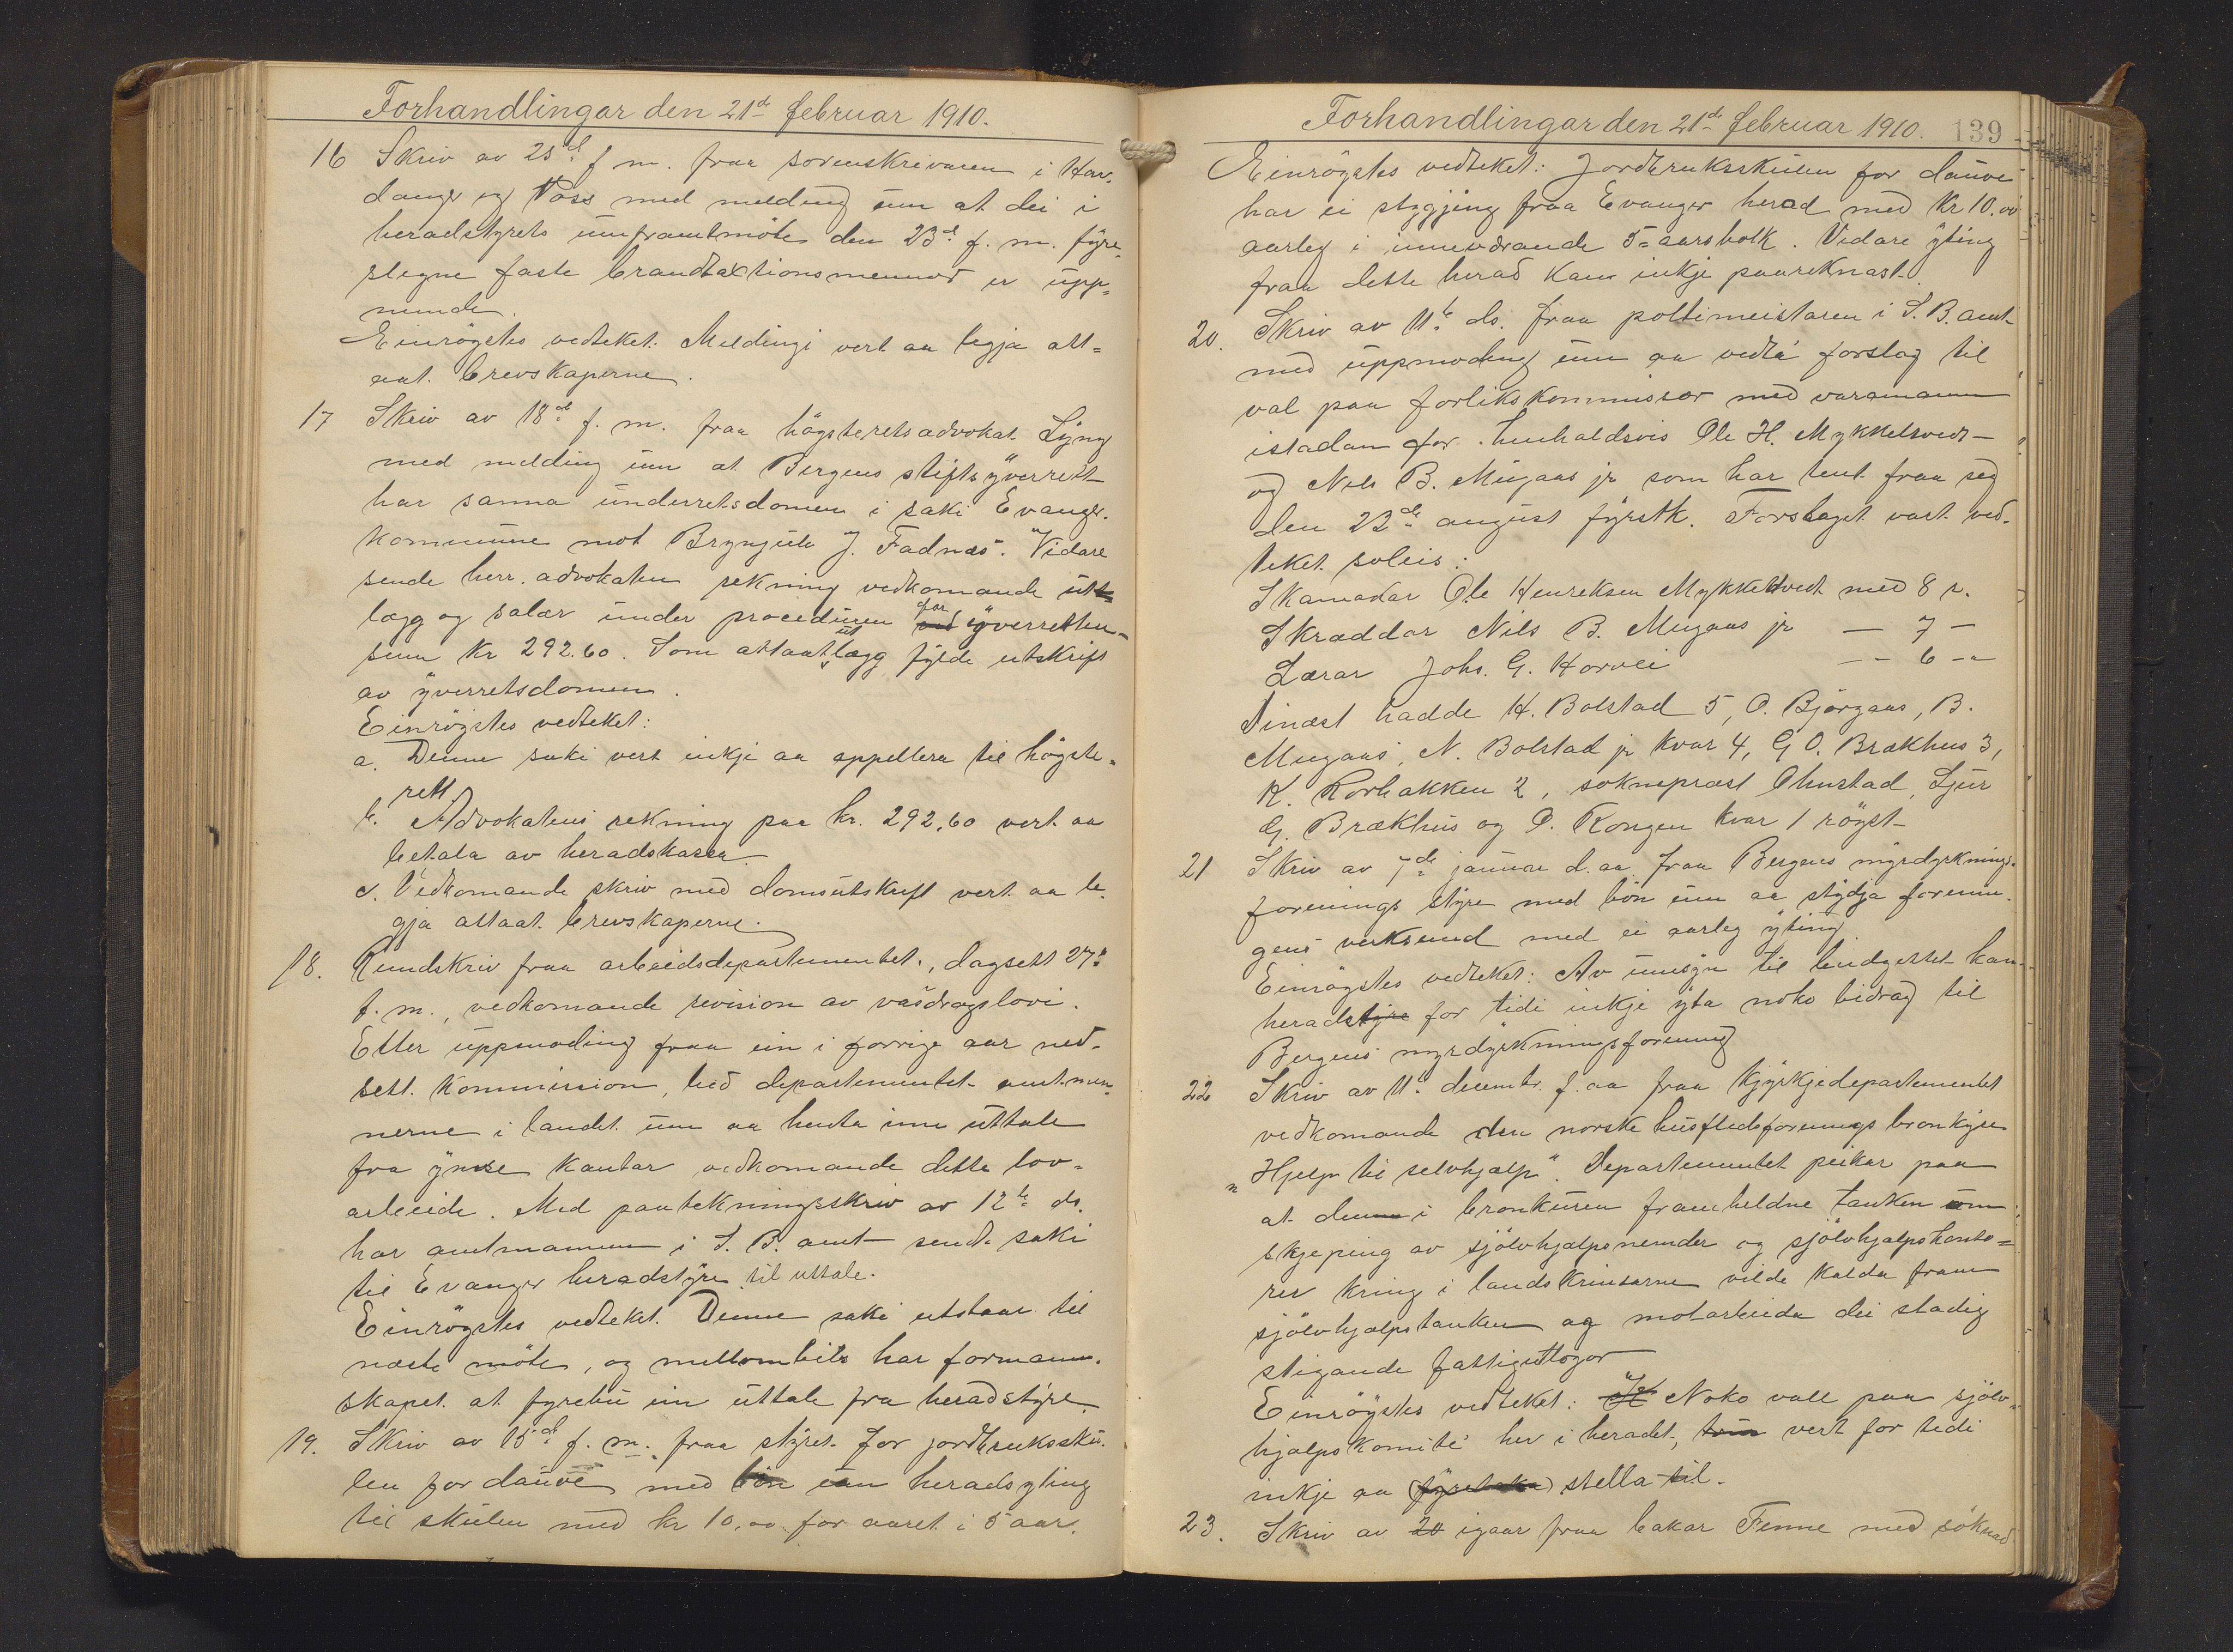 Forhandlingar den 21de februar 1910.
16 Skriv av 25de f. m. fraa sorenskrivaren i Har-
danger og Voss med melding um at dei i
heradstyrets umframtmöte den 23de f. m. fyre-
slegne faste brandtaxtionsmennar er upp-
nemde.
Einrögstes vedteket. Meldingi vert aa legja att-
aat brevskaperne.
17 Skriv av 18de f. m. fraa högsteretsadvokat Lyng
med melding um at Bergens stiftsyverrett
har sanna underretsdomen i saki Evanger
kommune mot Bryngjulv J. Fadnæs. Vidare
sende herr advokaten rekning vedkomande ut-
lægg og salær under proceduren for yverretten
paa kr 292.60. Som attaatlægg fylde utskrift
av yverretsdomen.
Einrögstes vedteket:
a. Denne saki vert inkje aa appellera til högste-
rett
b. Advokatens rekning paa kr. 292,60 vert aa
betala av heradskassa.
c. Vedkomande skriv med domsutskrift vert aa le-
gja attaat brevskaperne.
18. Rundskriv fraa arbeidsdepartementet, dagsett 27de
f. m., vedkomande revision av vasdragslovi.
Etter uppmoding fraa ein i forrige aar ned-
sett kommission, bed departementet amtmen-
nerne i landet um aa henta inn uttale
fra ymse kantar vedkomande dette lov-
arbeide. Med paateknings­skriv av 12te ds.
har amtmannen i S. B. amt sendt saki
til Evanger heradstyre til uttale.
Einrögstes vedteket. Denne saki utstaar til
næste möte, og mellombils har formann-
skapet at fyrebu ein uttale fra heradstyre.
19. Skriv av 15de f. m. fraa styret for jordbruksku-
len for dauve med bön um heradsyting
til skulen med kr 10,00 for aaret i 5 aar.
Forhandlingar den 21de februar 1910. 139
Einrögstes vedteket: Jordbruksskulen for dauve
har ei stygjing fraa Evanger herad med kr 10.00
aarleg i inneværande 5-aarsbolk. Vidare yting
fraa dette herad kann inkje paareknast.
20. Skriv av 11te ds. fraa politimeistaren i S. B. amt
med uppmoding um aa vedta forslag til
val paa forlikskommissær med varamann
istadan for henhaldsvis Ole H. Mykkeltvedt
og Nils B. Mugaas jr som har tent fraa seg
den 22de august fyrstk. Forslaget vart ved-
teket soleis:
Skamadar Ole Henriksen Mykkeltvedt med 8 r.
Skræddar Nils B. Mugaas jr — 7 —
Lærar Johs. G. Horvei — 6 —
Dinæst hadde H. Bolstad 5, O. Björgaas, B.
Mugaas, N. Bolstad jr kvar 4, G O. Brækhus 3,
K. Horbakken 2, sokneprest Ohnstad, Sjur
G. Brækhus og O. Kongen kvar 1 rögst
21 Skriv av 7de januar d. aa fraa Bergens myrdyrknings-
forenings styre med bön um aa stydja forenin-
gens verksemd med ei aarleg yting
Einrögstes vedteket: Av umsyn til budgettet kan
heradstyre for tidi inkje yta noko bidrag til
Bergens myrdyrkningsforening
22 Skriv av 11te decembr. f. aa fraa Kyrkjedepartementet
vedkomande den norske husflidsforenings bronkyre
"Hjelp til selvhjælp". Departementet peikar paa
at denne i bronkuren framheldne tanken um
skjeping av sjölvhjælpsnemder og sjölvhjælpskonto-
rer kring i landskrinsarne vilde kalda fram
sjölvhjælpstanken og motarbeida dei stadig
stigande fattigutlogor
Einrögstes vedteket: Noko vall paa sjölv-
hjælpskomite her i heradet, vert for tidi
inkje aa (fyretaka) stella til.
23. Skriv av 20 igaar fraa bakar Fenne med söknad